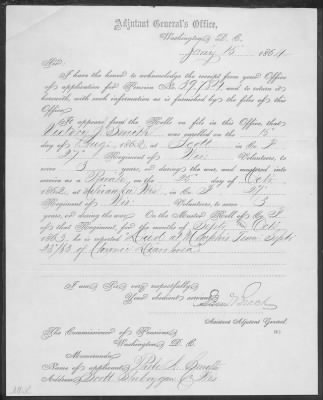 Adjutant General's Office,
Washington, D. C.
Jany 15 1864
Sir:
I have the honor to acknowledge the receipt from your Office
of application for Pension No. 39,184 and to return it
herewith, with such information as is furnished by the files of this
Office.
It appears from the Rolls on file in this Office, that
was enrolled on the 15
day of Aug. 1862 at Scott in Co. F
27 Regiment of Wis. Volunteers, to serve
3 years, or during the war, and mustered into
service as a Private on the day of Oct.
1862, at Wis in Co. F 27
Regiment of Wis. Volunteers, to serve 3
years, or during the war. On the Muster Roll of Co. F
of that Regiment, for the months of Septr and Oct.
1863, he is reported "Died at Memphis Tenn Septr
/63 of Chronic Diarrhoea"
I am Sir, very respectfully,
Your obedient servant,
Assistant Adjutant General.
The Commissioner of Pensions,
Washington, D. C.
Memoranda:
Name of applicant,
Address, Scott Sheboygan Co Wis